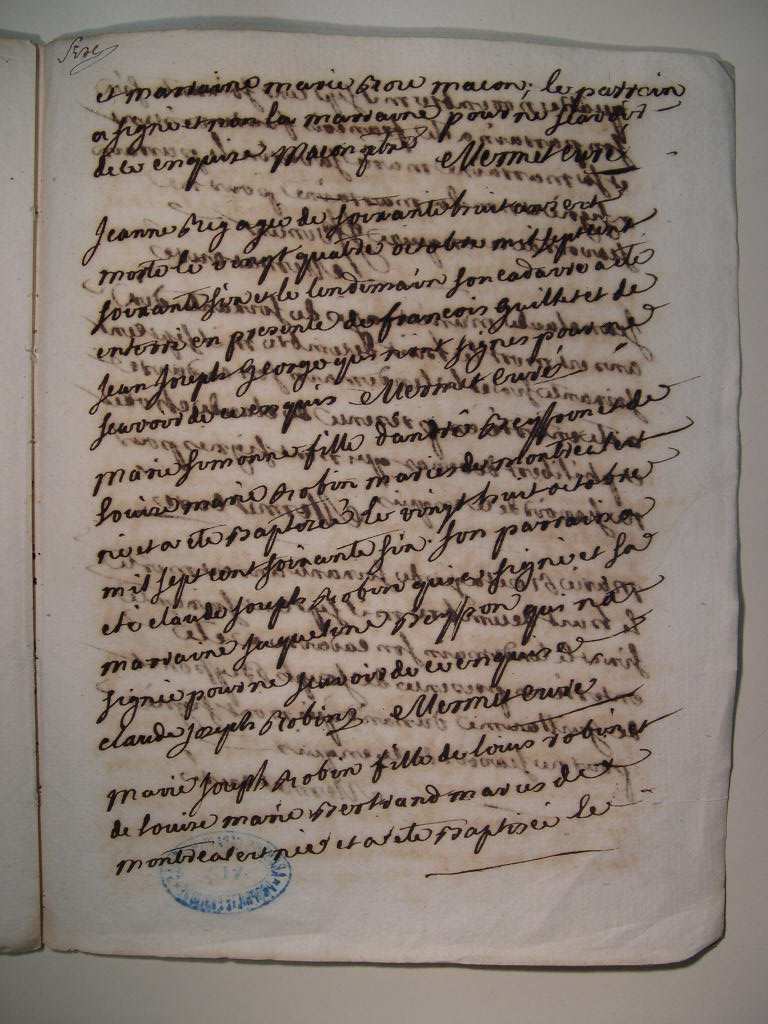 et marraine marie Rose macon; le parrain
a signé et non la marraine pour ne scavoir
de ce enquise Macon Mermet curé
Jeanne Regagie de soixante huit ans est
morte le vingt quatre octobre mil sept cent
soixante six et le lendemain son cadavre a ete
enterré en presence de françois guillet et de
Jean Joseph George qui n'ont signes pour ne
scavoir de ce enquis Mermet curé
marie simonne fille d'andré Besson et de
Louise marie Robin mariés de montreal est
née et a ete Baptisée le vingt huit octobre
mil sept cent soixante six. son parrain a
eté claude Joseph Robin qui a signé et sa
marraine Jaqueline Besson qui n'a
signée pour ne scavoir de ce enquise
claude Joseph Robin Mermet curé
marie Joseph Robin fille de louis robin et
de louise marie Bertrand mariés de
montreal est née et a ete Baptisée le